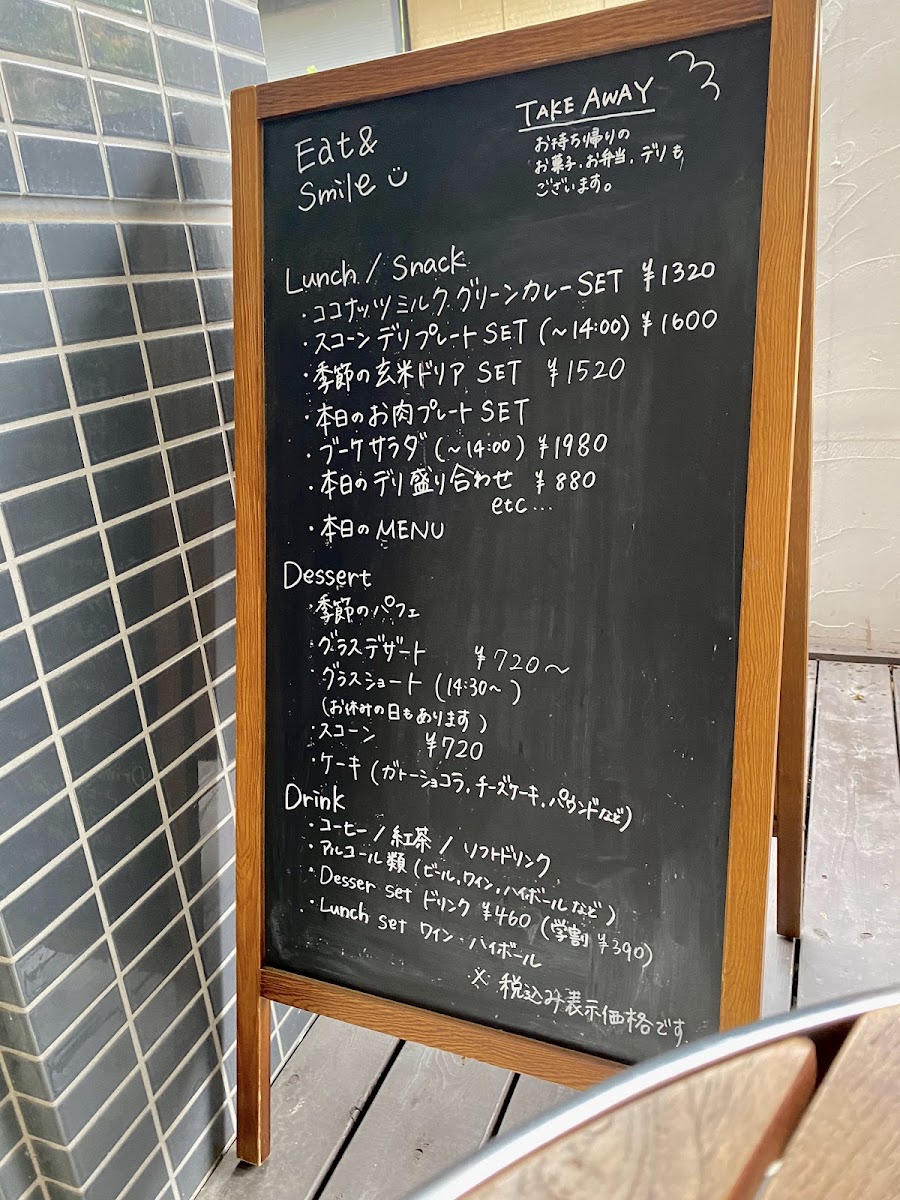 Eat &
Smile
TAKE AWAY
お持ち帰りの
お菓子、お弁当、デリも
ございます。
Lunch / Snack
・ココナッツミルク グリーンカレー SET ¥1320
・スコーン デリプレート SET (~14:00) ¥1600
・季節の玄米ドリア SET ¥1520
・本日のお肉プレート SET
・ブーケサラダ (~14:00) ¥1980
・本日のデリ盛り合わせ ¥880
etc...
・本日の MENU
Dessert
・季節のパフェ
・グラスデザート ¥720~
・グラスショート (14:30~)
(お休みの日もあります)
・スコーン ¥720
・ケーキ (ガトーショコラ、チーズケーキ、パウンドなど)
Drink
・コーヒー / 紅茶 / ソフトドリンク
・アルコール類 (ビール、ワイン、ハイボールなど)
・Desser set ドリンク ¥460 (学割 ¥390)
・Lunch set ワイン・ハイボール
※ 税込み表示価格です.